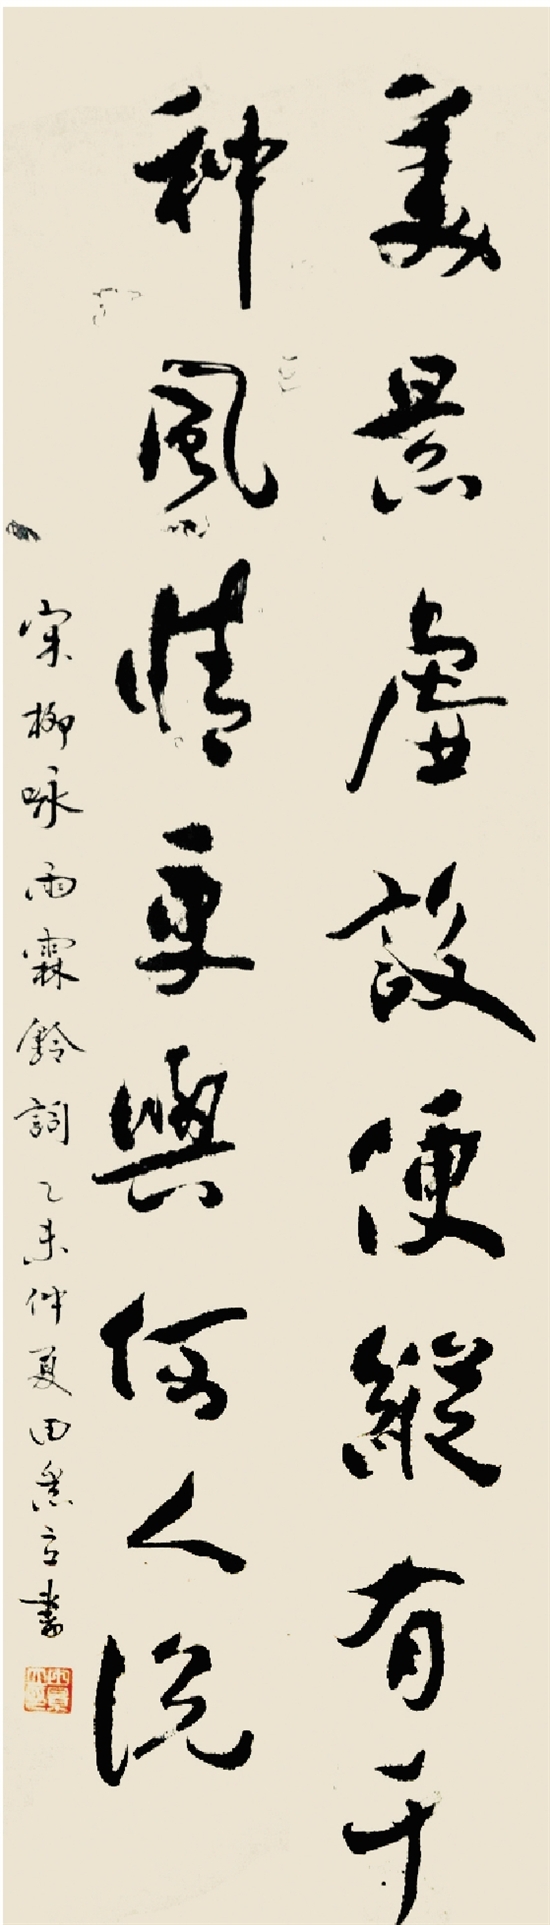 美景虛設便縱有千
种風情更與何人說
宋柳咏雨霖鈴詞乙未仲夏田立書